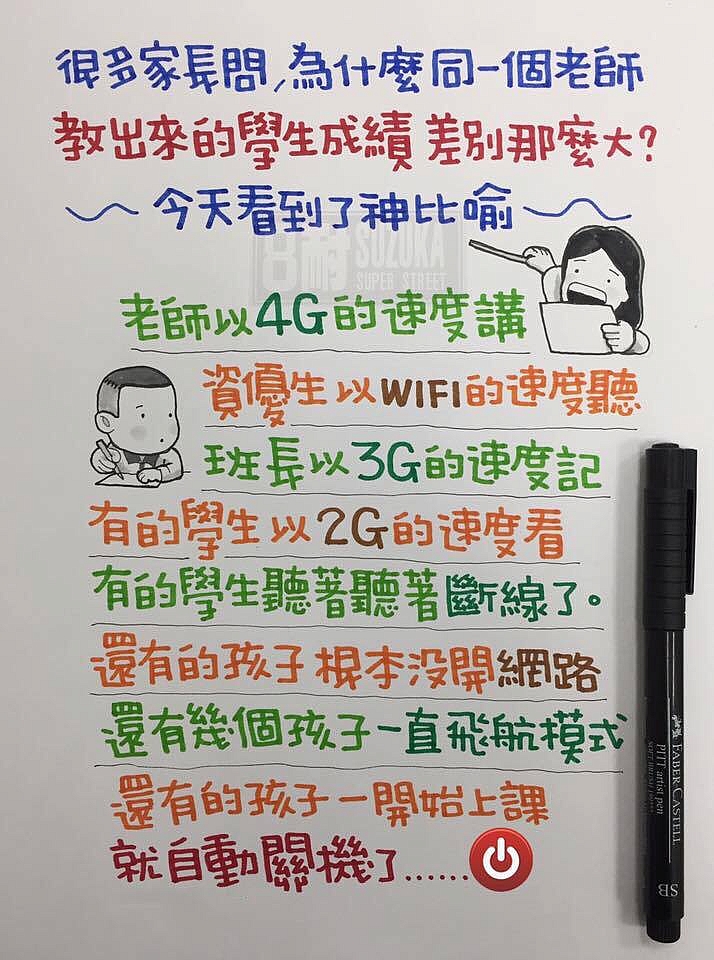 很多家長問,為什麼同一個老師
教出來的學生成績 差別那麼大?
今天看到了神比喻
8耐 SUZUKA
SUPER STREET
老師以4G的速度講
資優生以WIFI的速度聽
班長以3G的速度記
有的學生以2G的速度看
有的學生聽著聽著斷線了。
還有的孩子根本沒開網路
還有幾個孩子一直飛航模式
還有的孩子一開始上課
就自動關機了......
FABER-CASTELL
PITT artist pen
SB